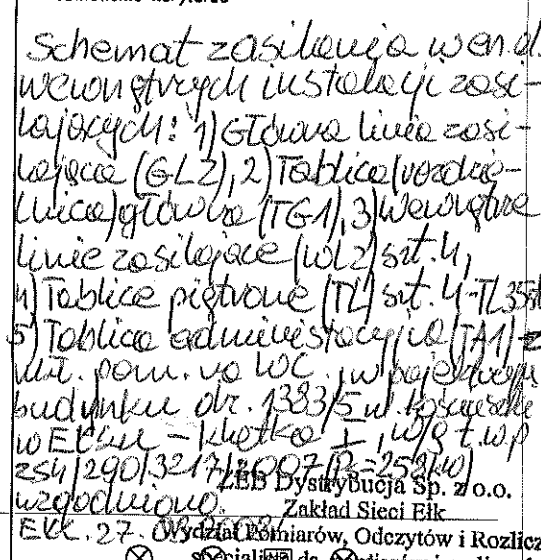 Schemat zasilania wen.d.
wewnętrznych instalacji zasi-
lających: 1) Główna linia zasi-
lająca (GLZ), 2) Tablica (rozdziel-
nica) główna (TG1), 3) Wewnętrzne
linie zasilające (WLZ) szt. 4,
4) Tablice piętrowe (TL) szt. 4 - TL
5) Tablica administracyjna (TA1) - z
ukł. pom. na WC. w
budynku dz. 1383/5 ul. Kościuszki
w Ełku - klatka I, w/g t.w.p
ZS4/290/3217/2007 (P=258kW)
uzgodniono. ZEB Dystrybucja Sp. z o.o.
Zakład Sieci Ełk
Ełk. 27. Wydział Pomiarów, Odczytów i Rozlicz
specjalista ds.